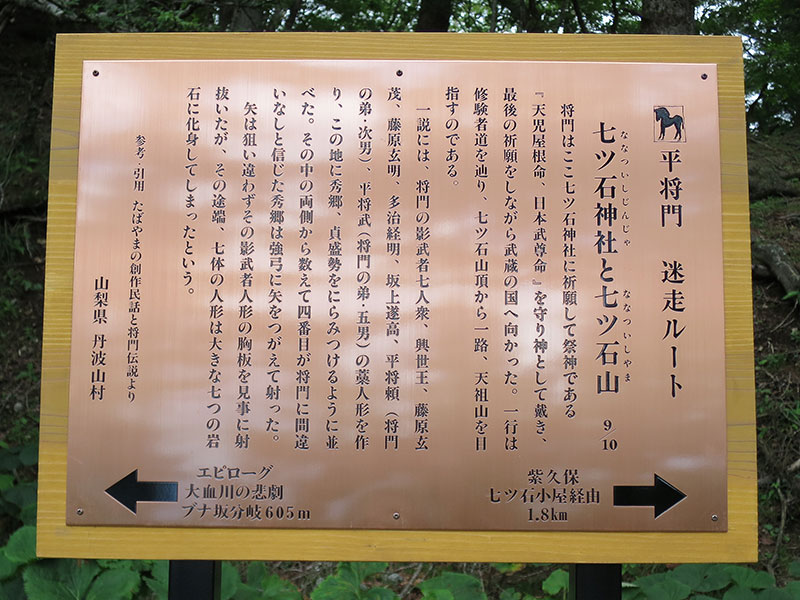 平将門 迷走ルート
七ツ石神社と七ツ石山 9/10
ななついしじんじゃ ななついしやま
将門はここ七ツ石神社に祈願して祭神である
『天児屋根命、日本武尊命』を守り神として戴き、
最後の祈願をしながら武蔵の国へ向かった。一行は
修験者道を辿り、七ツ石山頂から一路、天祖山を目
指すのである。
一説には、将門の影武者七人衆、興世王、藤原玄
茂、藤原玄明、多治経明、坂上遂高、平将頼(将門
の弟・次男)、平将武(将門の弟・五男)の藁人形を作
り、この地に秀郷、貞盛勢をにらみつけるように並
べた。その中の両側から数えて四番目が将門に間違
いなしと信じた秀郷は強弓に矢をつがえて射った。
矢は狙い違わずその影武者人形の胸板を見事に射
抜いたが、その途端、七体の人形は大きな七つの岩
石に化身してしまったという。
参考・引用 たばやまの創作民話と将門伝説より
山梨県 丹波山村
エピローグ
大血川の悲劇
ブナ坂分岐605m
紫久保
七ツ石小屋経由
1.8km